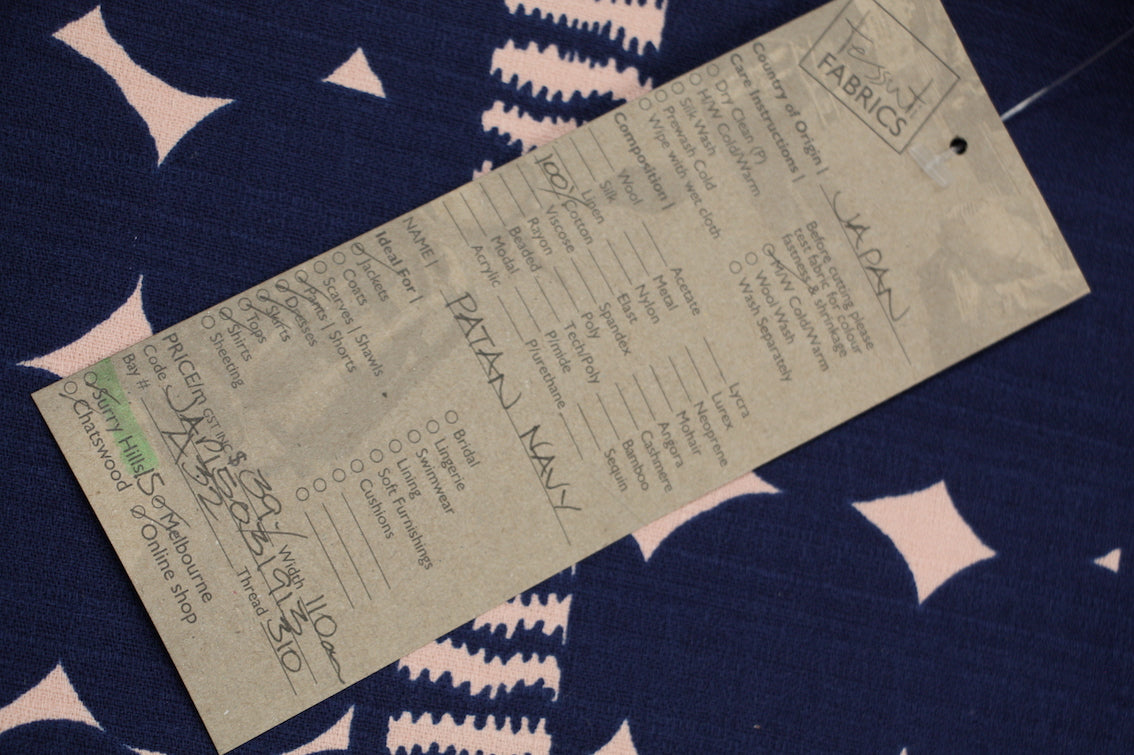 Tessuti
FABRICS
Country of Origin | JAPAN
Care Instructions |
Dry Clean (P)
H/W Cold/Warm
Silk Wash
Prewash Cold
Wipe with wet cloth
Before cutting please
test fabric for colour
fastness & shrinkage
H/W Cold/Warm
Wool Wash
Wash Separately
Composition |
Wool
Silk
Linen
100% Cotton
Viscose
Rayon
Beaded
Modal
Acrylic
Acetate
Metal
Nylon
Elast
Spandex
Poly
Tech/Poly
P/mide
P/urethane
Lycra
Lurex
Neoprene
Mohair
Angora
Cashmere
Bamboo
Sequin
NAME | PATAN NAVY
Ideal For |
Jackets
Coats
Scarves | Shawls
Pants | Shorts
Dresses
Skirts
Tops
Shirts
Sheeting
Bridal
Lingerie
Swimwear
Lining
Soft Furnishings
Cushions
PRICE/m GST INC $ 39- Width 110cm
Code
Bay # A32 Thread 310
Surry Hills Melbourne
Chatswood Online shop